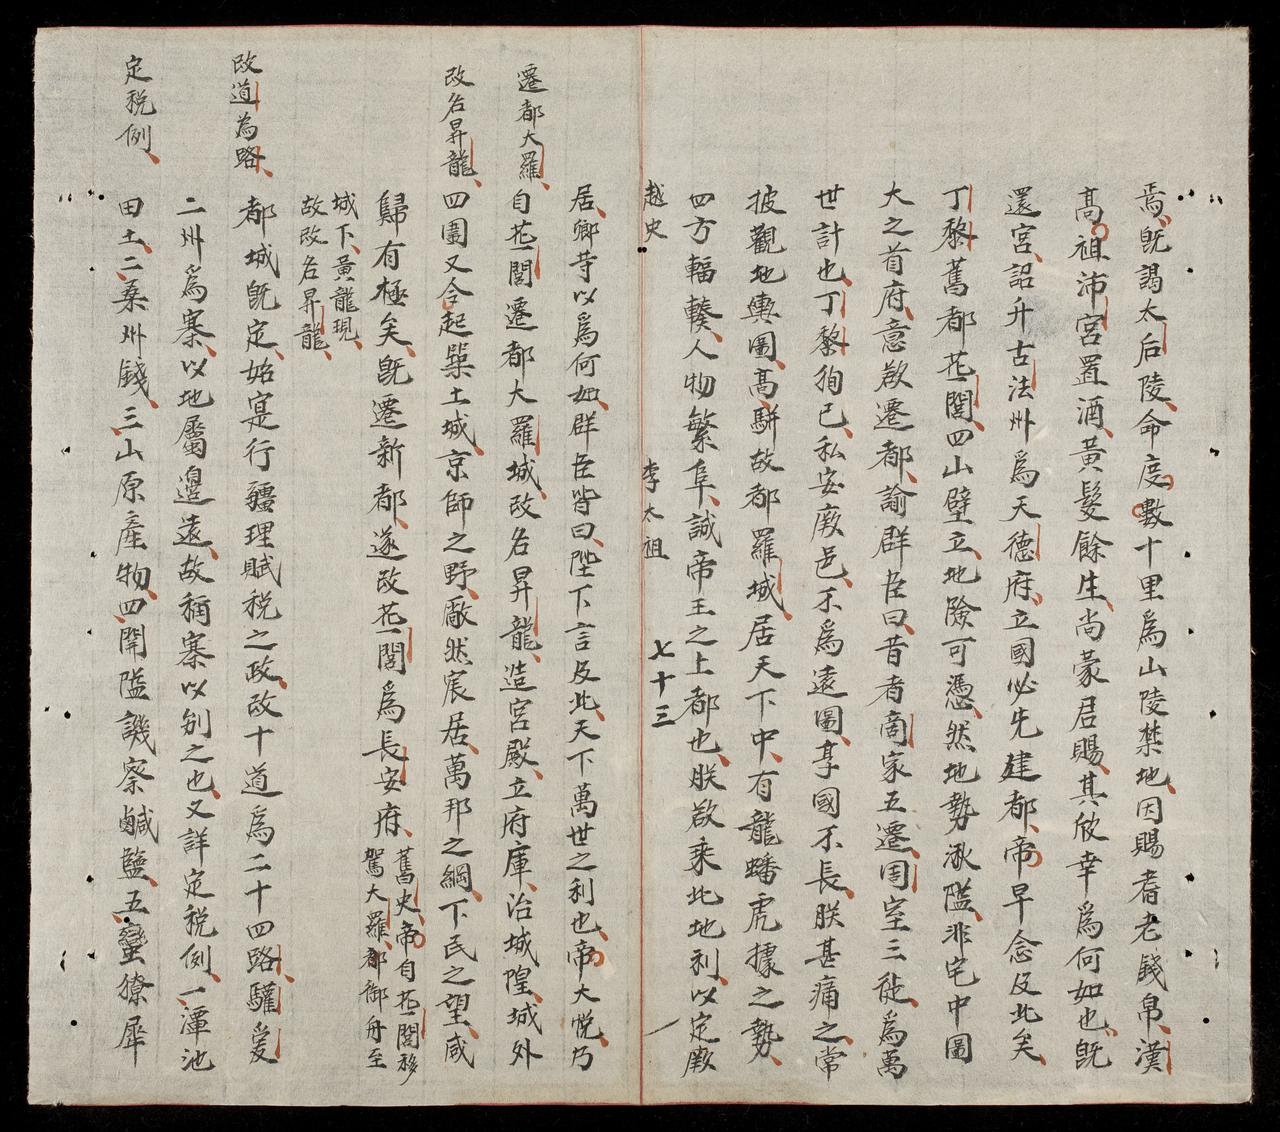 焉既謁太后陵命度數十里爲山陵禁地因賜耆老錢帛漢
高祖沛宮置酒黃髮餘生尚蒙君賜其欣幸爲何如也既
還宮詔升古法州爲天德府立國必先建都帝早念及此矣
丁黎舊都花閭四山壁立地險可憑然地勢湫隘非宅中圖
大之首府意欲遷都諭群臣曰昔者商家五遷周室三徙爲萬
世計也丁黎徇己私安厥邑不爲遠圖享國不長朕甚痛之常
披觀地輿圖高駢故都羅城居天下中有龍蟠虎據之勢
四方輻輳人物繁阜誠帝王之上都也朕欲乘此地利以定厥
越史 李太祖 七十三
居鄉等以爲何如群臣皆曰陛下言及此天下萬世之利也帝大悅乃
遷都大羅
自花閭遷都大羅城改名昇龍造宮殿立府庫治城隍城外
改名昇龍
四圍又令起築土城京師之野廠然宸居萬邦之綱下民之望咸
歸有極矣既遷新都遂改花閭爲長安府舊史帝自花閭移
駕大羅都御舟至
城下黃龍現
故改名昇龍
改道為路
都城既定始寔行疆理賦稅之政改十道爲二十四路驩爱
二州爲寨以地屬邊遠故稱寨以別之也又詳定稅例一潭池
定稅例
田土二桑州錢三山原產物四關隘譏察鹹鹽五蠻獠犀